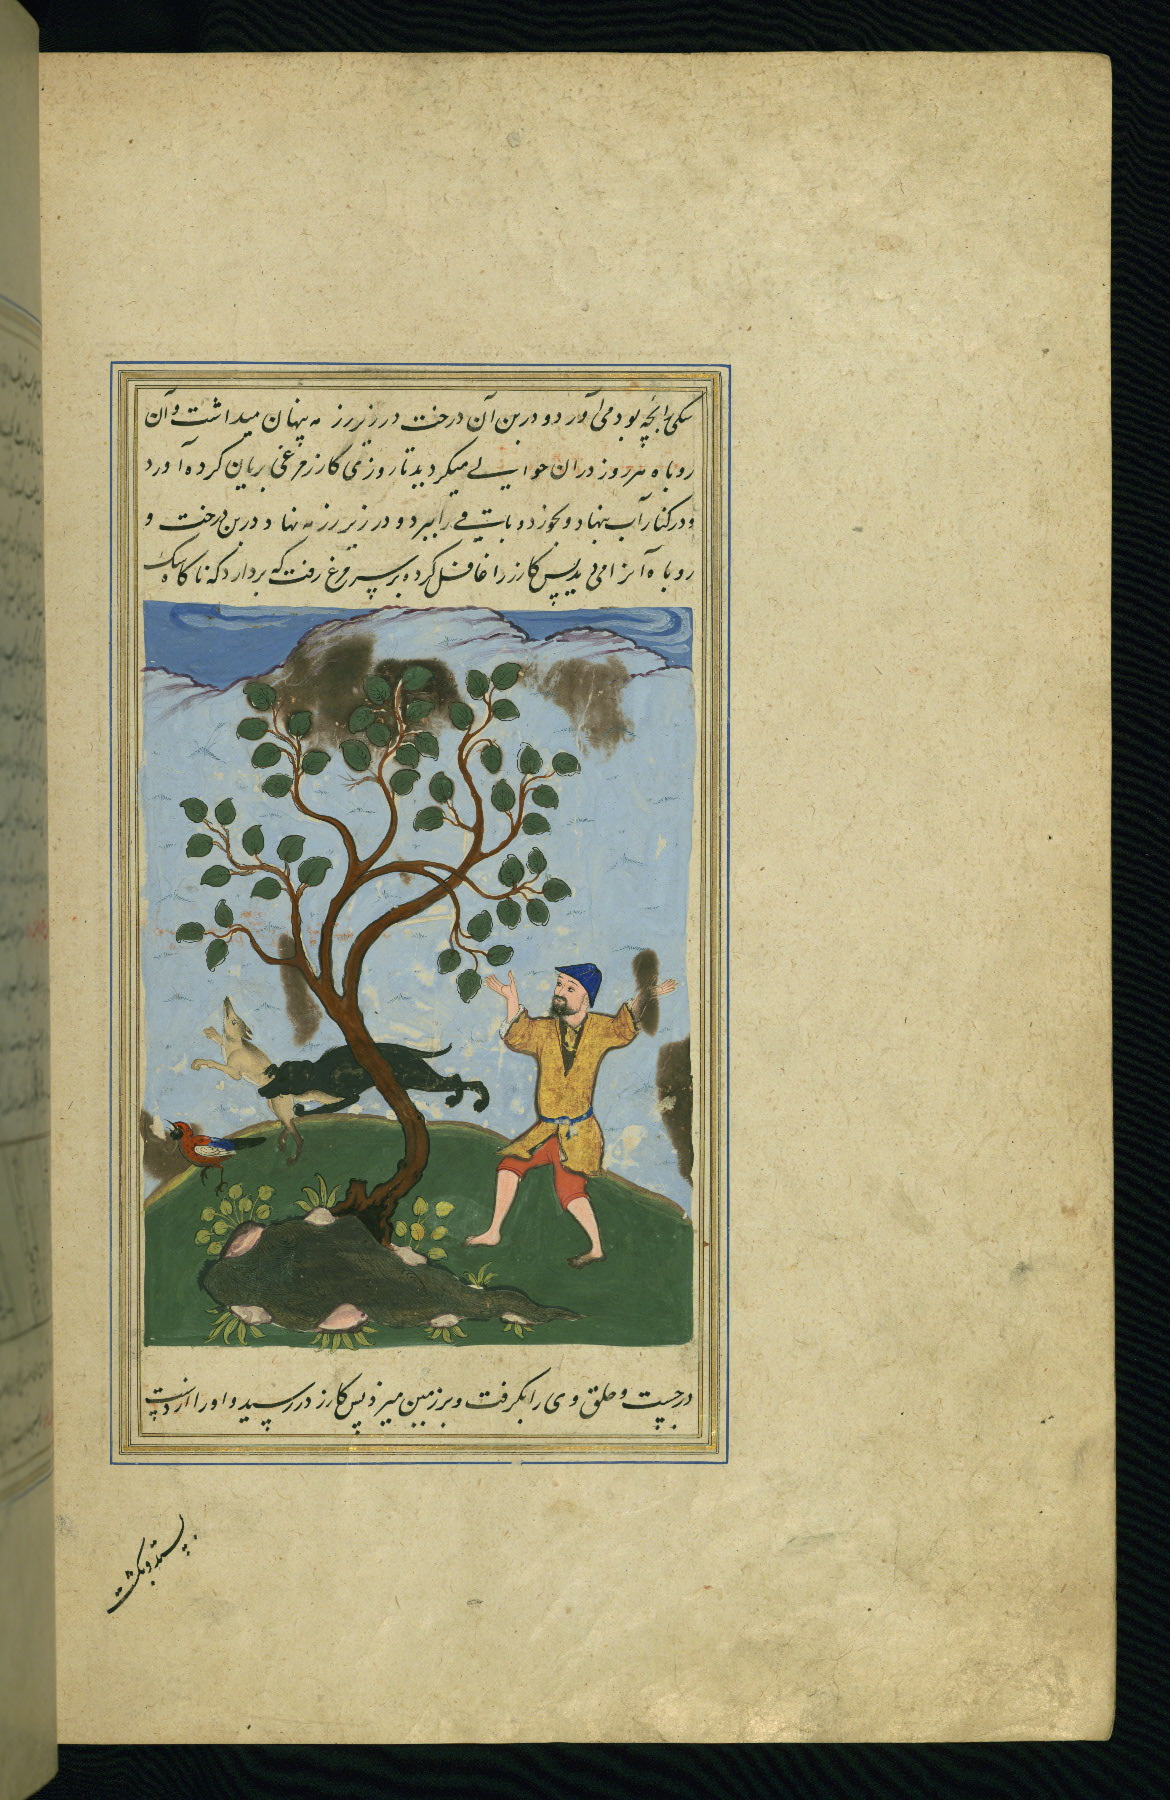 سکی را نچه بود می آورد و در بن آن درخت در زیر رز مه پنهان میداشت و آن
روباه هر روز در ان حوالی میکردید تا روزی کارز مرغی بریان کرده آورد
و در کنار آب بنهاد و بخورد و باقی را ببرد و در زیر رز مه نهاد در بن درخت و
روباه آنرا می دید پس کارز را غافل کرده بر سر مرغ رفت که بردارد که ناکاه سک
در جست و حلق وی را بکرفت و بر زمین میزد پس کارز در رسید و او را از دست
بستد و بکشت